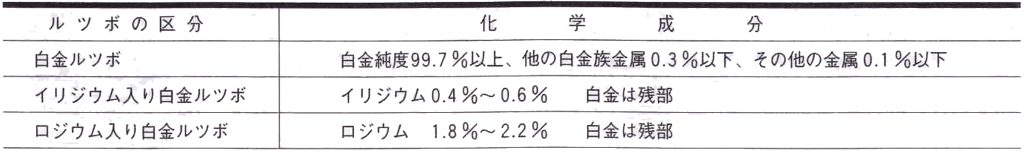 ルツボの区分 化学成分
白金ルツボ 白金純度99.7%以上、他の白金族金属0.3%以下、その他の金属0.1%以下
イリジウム入り白金ルツボ イリジウム0.4%～0.6% 白金は残部
ロジウム入り白金ルツボ ロジウム 1.8%～2.2% 白金は残部